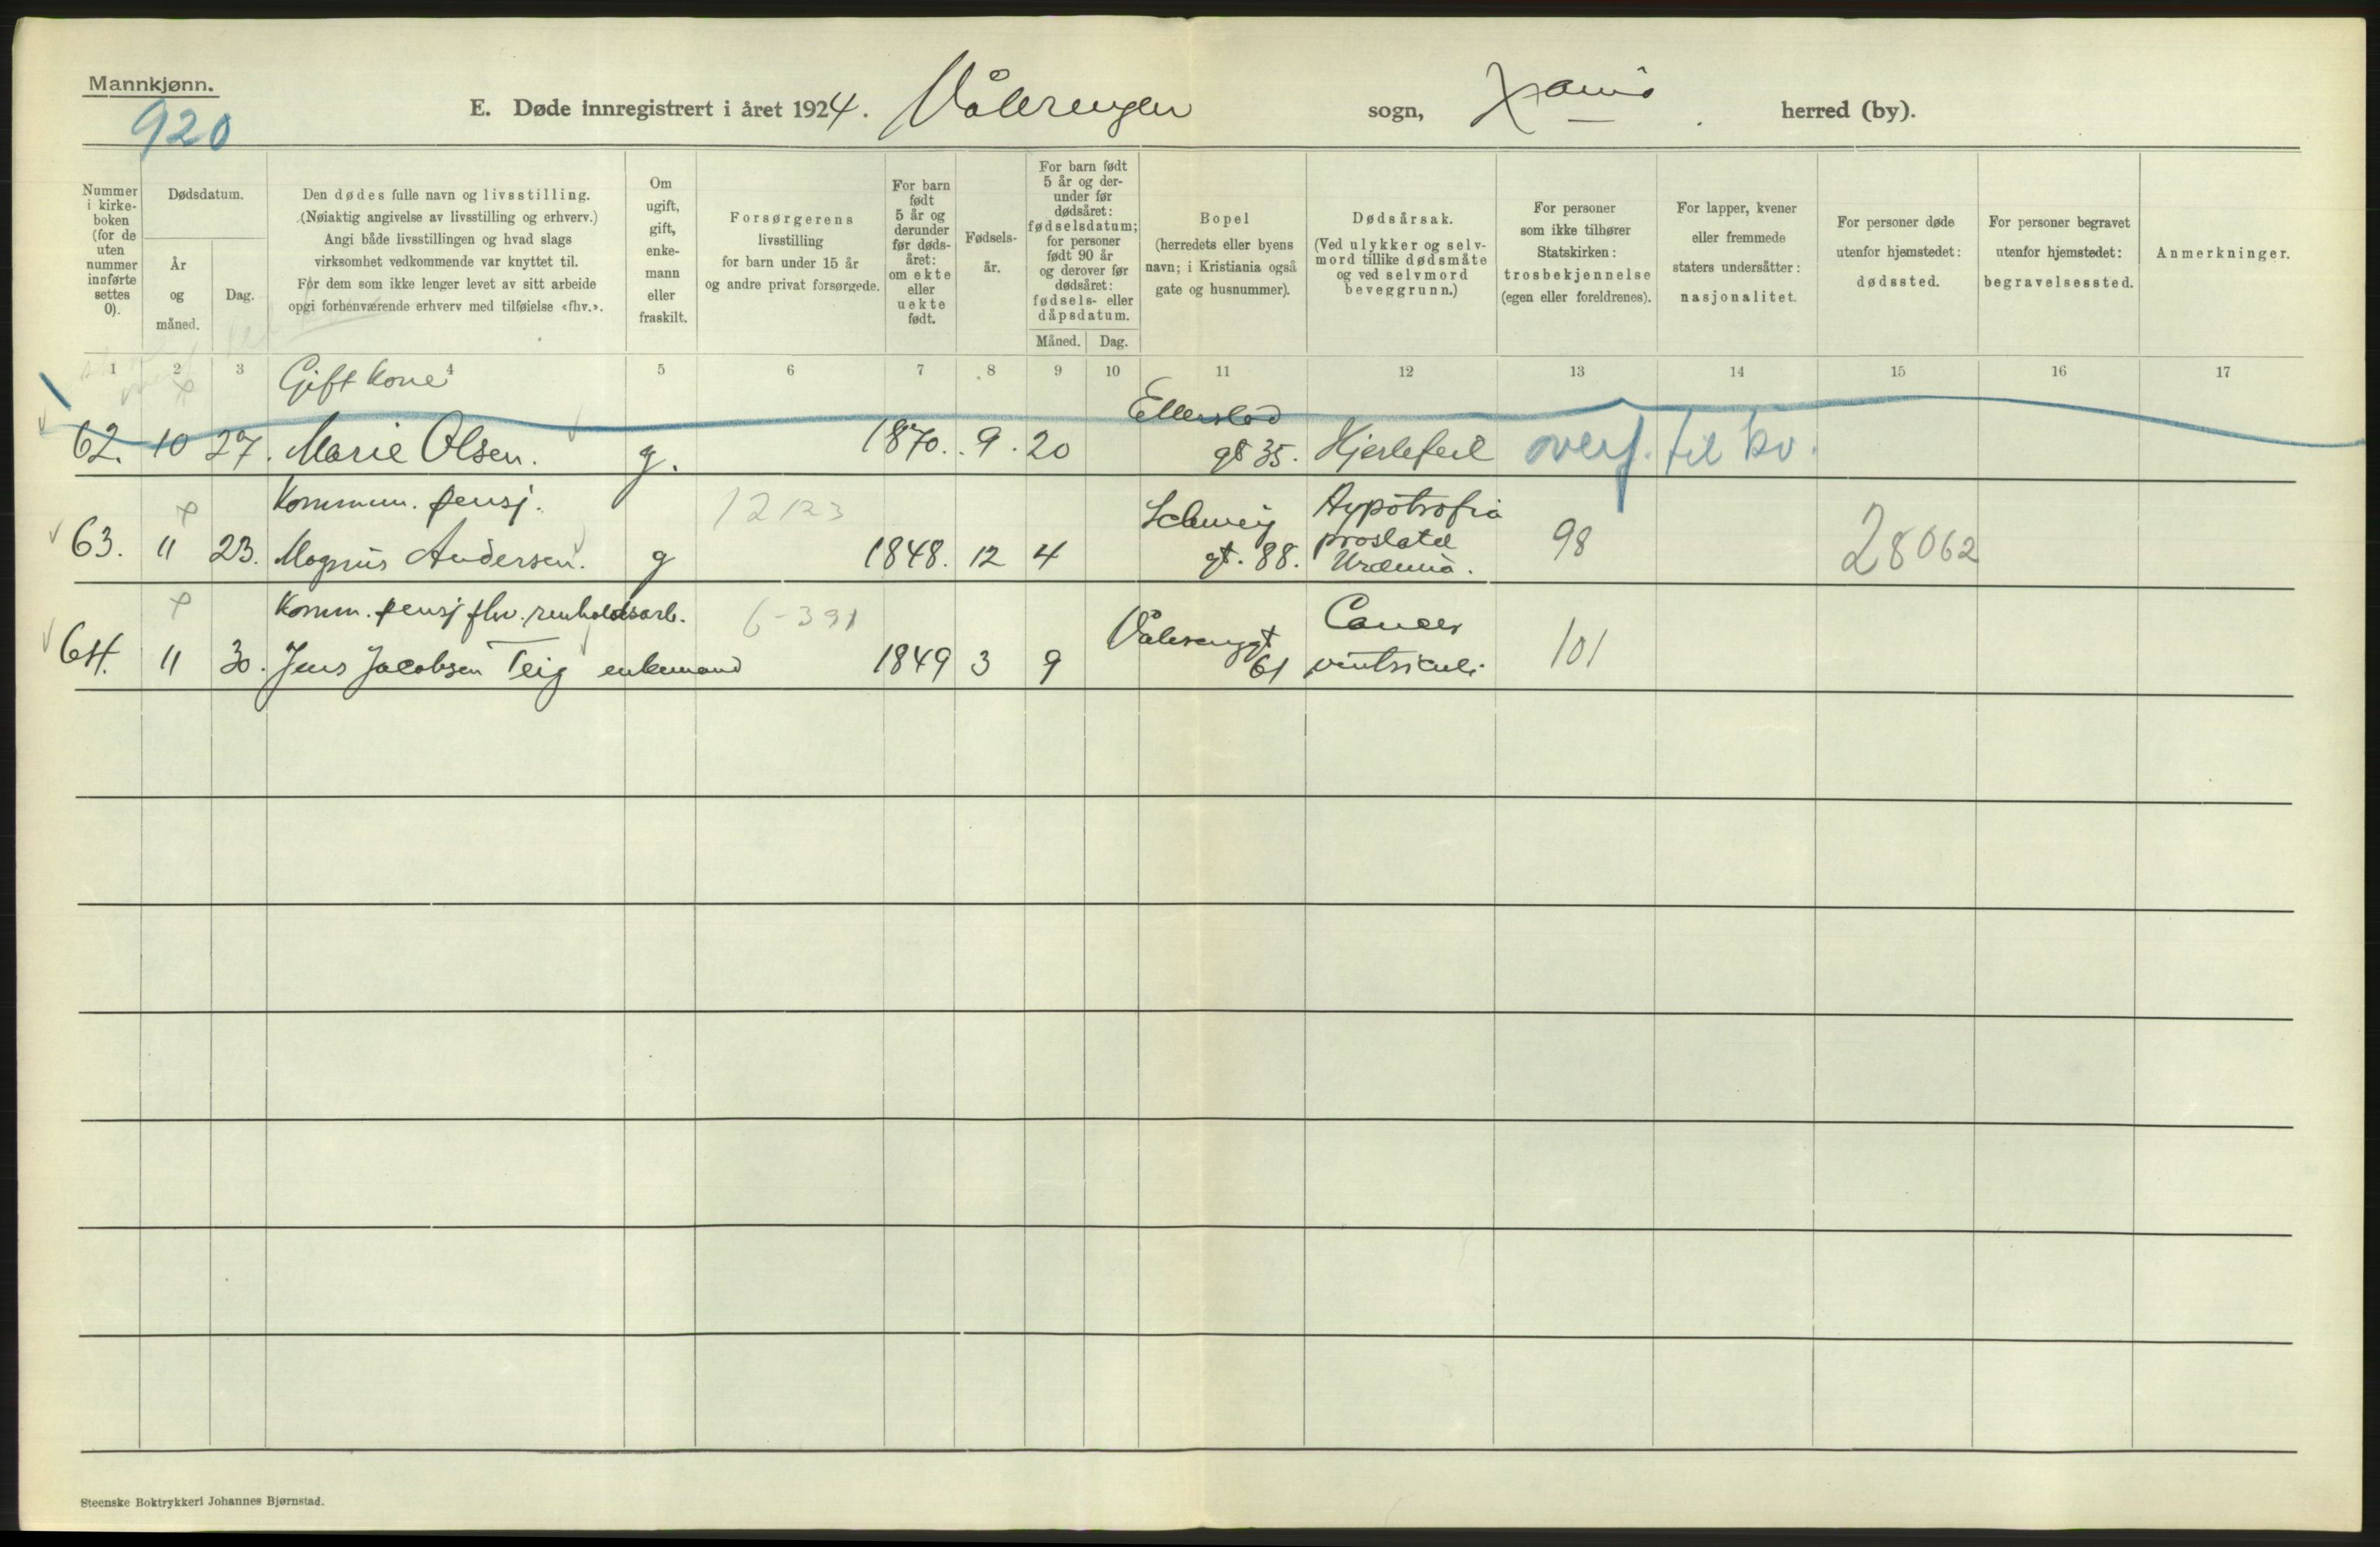 Mannkjønn.
920
E. Døde innregistrert i året 1924. Vålerengen sogn, Xania herred (by).
Nummer i kirke-boken (for de uten nummer innførte settes 0).
Dødsdatum.
År og måned.
Dag.
Den dødes fulle navn og livsstilling.
(Nøiaktig angivelse av livsstilling og erhverv.)
Angi både livsstillingen og hvad slags
virksomhet vedkommende var knyttet til.
For dem som ikke lenger levet av sitt arbeide
opgi forhenværende erhverv med tilføielse «fhv.».
Om ugift, gift, enke-mann eller fraskilt.
Forsørgerens
livsstilling
for barn under 15 år
og andre privat forsørgede.
For barn født 5 år og derunder før døds-året: om ekte eller uekte født.
Fødsels-år.
For barn født 5 år og der-under før dødsåret: fødselsdatum; for personer født 90 år og derover før dødsåret: fødsels- eller dåpsdatum.
Måned. Dag.
Bopel
(herredets eller byens
navn; i Kristiania også
gate og husnummer).
Dødsårsak.
(Ved ulykker og selv-
mord tillike dødsmåte
og ved selvmord
beveggrunn.)
For personer
som ikke tilhører
Statskirken:
trosbekjennelse
(egen eller foreldrenes).
For lapper, kvener
eller fremmede
staters undersåtter:
nasjonalitet.
For personer døde
utenfor hjemstedet:
dødssted.
For personer begravet
utenfor hjemstedet:
begravelsessted.
Anmerkninger.
1 2 3 4 5 6 7 8 9 10 11 12 13 14 15 16 17
Gift kone
Ellerslad
62. 10 27. Marie Olsen. g. 1870. 9. 20 gt 35. Hjertefeil overf. til kv.
Kommun. pensj. 12123 Schweig Hypotrofia
63. 11 23. Magnus Andersen. g 1848. 12 4 gt. 88. prostatal 98 28062
Urämia.
Komm. pensj fhv. renholdsarb. 6-391 Vålerenggt Cancer
64. 11 30. Jens Jacobsen Teig enkemand 1849 3 9 61 ventriculi 101
Steenske Boktrykkeri Johannes Bjørnstad.